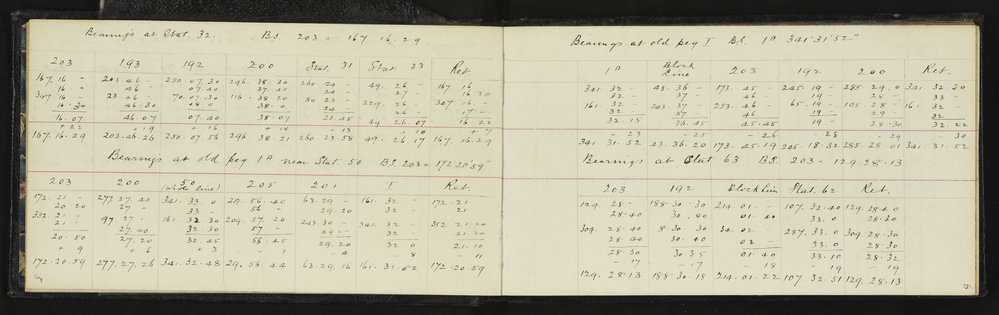 Bearings at Stat. 32. BS 203 = 167.16.29
203 193 192 200 Stat. 31 Stat 33 Ret.
167.16 - 203.46 - 250.07.30 296.38.30 260.24 - 49.26 167 16
16 - 46 - 07.40 37.40 24 - 27 - 16.30
347.16 - 23.46 - 70.07.30 116.38.20 80 23 - 229.26 347 16 -
16.30 46.30 08.0 38.0 24 - 26
16.07 46.07 07.40 38.07 23.45 49 26.07 16.22
+ 22 + 19 + 16 + 14 + 13 + 10 + 7
167.16.29 203.46.26 250.07.56 296.38.21 260.23.58 49.26.17 167.16.29
Bearings at old peg 1A near Stat 50 BS. 203 = 172°20'59"
203 200 50 205 201 I Ret.
(Whole line)
172.21 - 277.27.40 341.33.0 29.56.40 63.29 - 161.32 - 172.21
20 20 27 - 33 - 56 - 29.20 32 - 21
352.21 - 97.27 - 161.32.30 209.57.20 243.30 - 341.32 - 352.21.20
21 - 27.40 32.30 57 - 29 - 32 - 21.20
20.50 27.20 32.45 56.45 29.20 32 0 21.10
+ 9 + 6 + 3 - 1 - 4 - 8 - 11
172.20.59 277.27.26 341.32.48 29.56.44 63.29.16 161.31.52 172.20.59
Bearings at old peg I BS. 1A 341°31'52"
1A Block Line 203 192 200 Ret.
341.32 - 43.36 - 173.45 - 245.19 - 285 29.0 341.32.30
32 - 37 - 46 - 19 - 28 - 33 -
161.32 - 223.37 - 253.46 - 65.19 - 105.28 - 161.32 -
32 - 37 - 46 - 19 - 29 - 32 -
32.15 36.45 45.45 19 - 28.30 32.22
- 23 - 25 - 26 - 28 - 29 - 30
341.31.52 43.36.20 173.45.19 245.18.32 285.28.01 341.31.52
Bearings at Stat 63 BS. 203 = 129.28.13
203 192 Blockline Stat. 62 Ret.
129.28 - 188.30.30 214.01 - 107.32.40 129.28.40
28.40 30.40 01.40 33.0 28.20
309.28.40 8.30.30 34.02 - 287.33.0 309.28.30
28.40 30.40 02 - 33.0 28.30
28.30 30.35 01.40 33.10 28.32
- 17 - 17 - 18 - 19 - 19
129.28.13 188.30.18 214.01.22 107.32.51 129.28.13